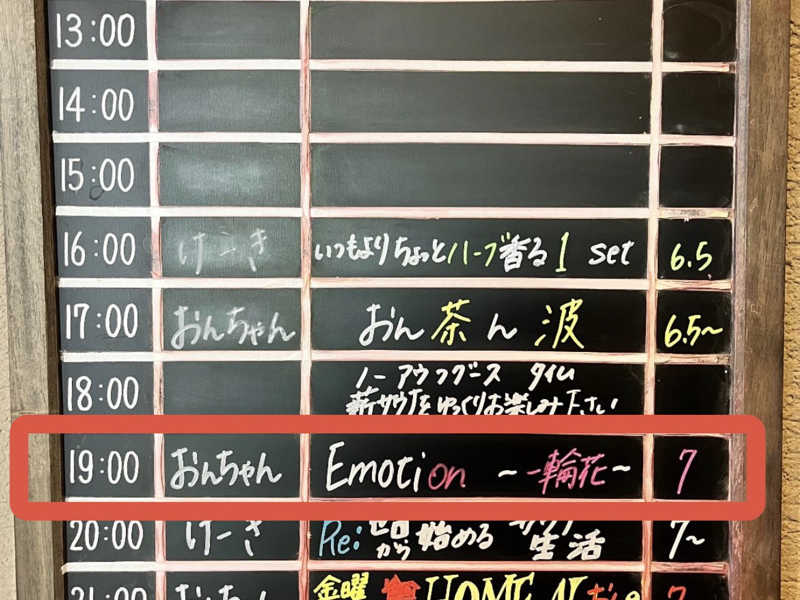 13:00
14:00
15:00
16:00 けーき いつもよりちょっとハーブ香る1 set 6.5
17:00 おんちゃん おん茶ん波 6.5~
18:00 ノーアウフグースタイム
薪サウナをゆっくりお楽しみ下さい
19:00 おんちゃん Emotion ~一輪花~ 7
20:00 けーき Re:ゼロから始めるサウナ生活 7~
21:00 金曜 HOME